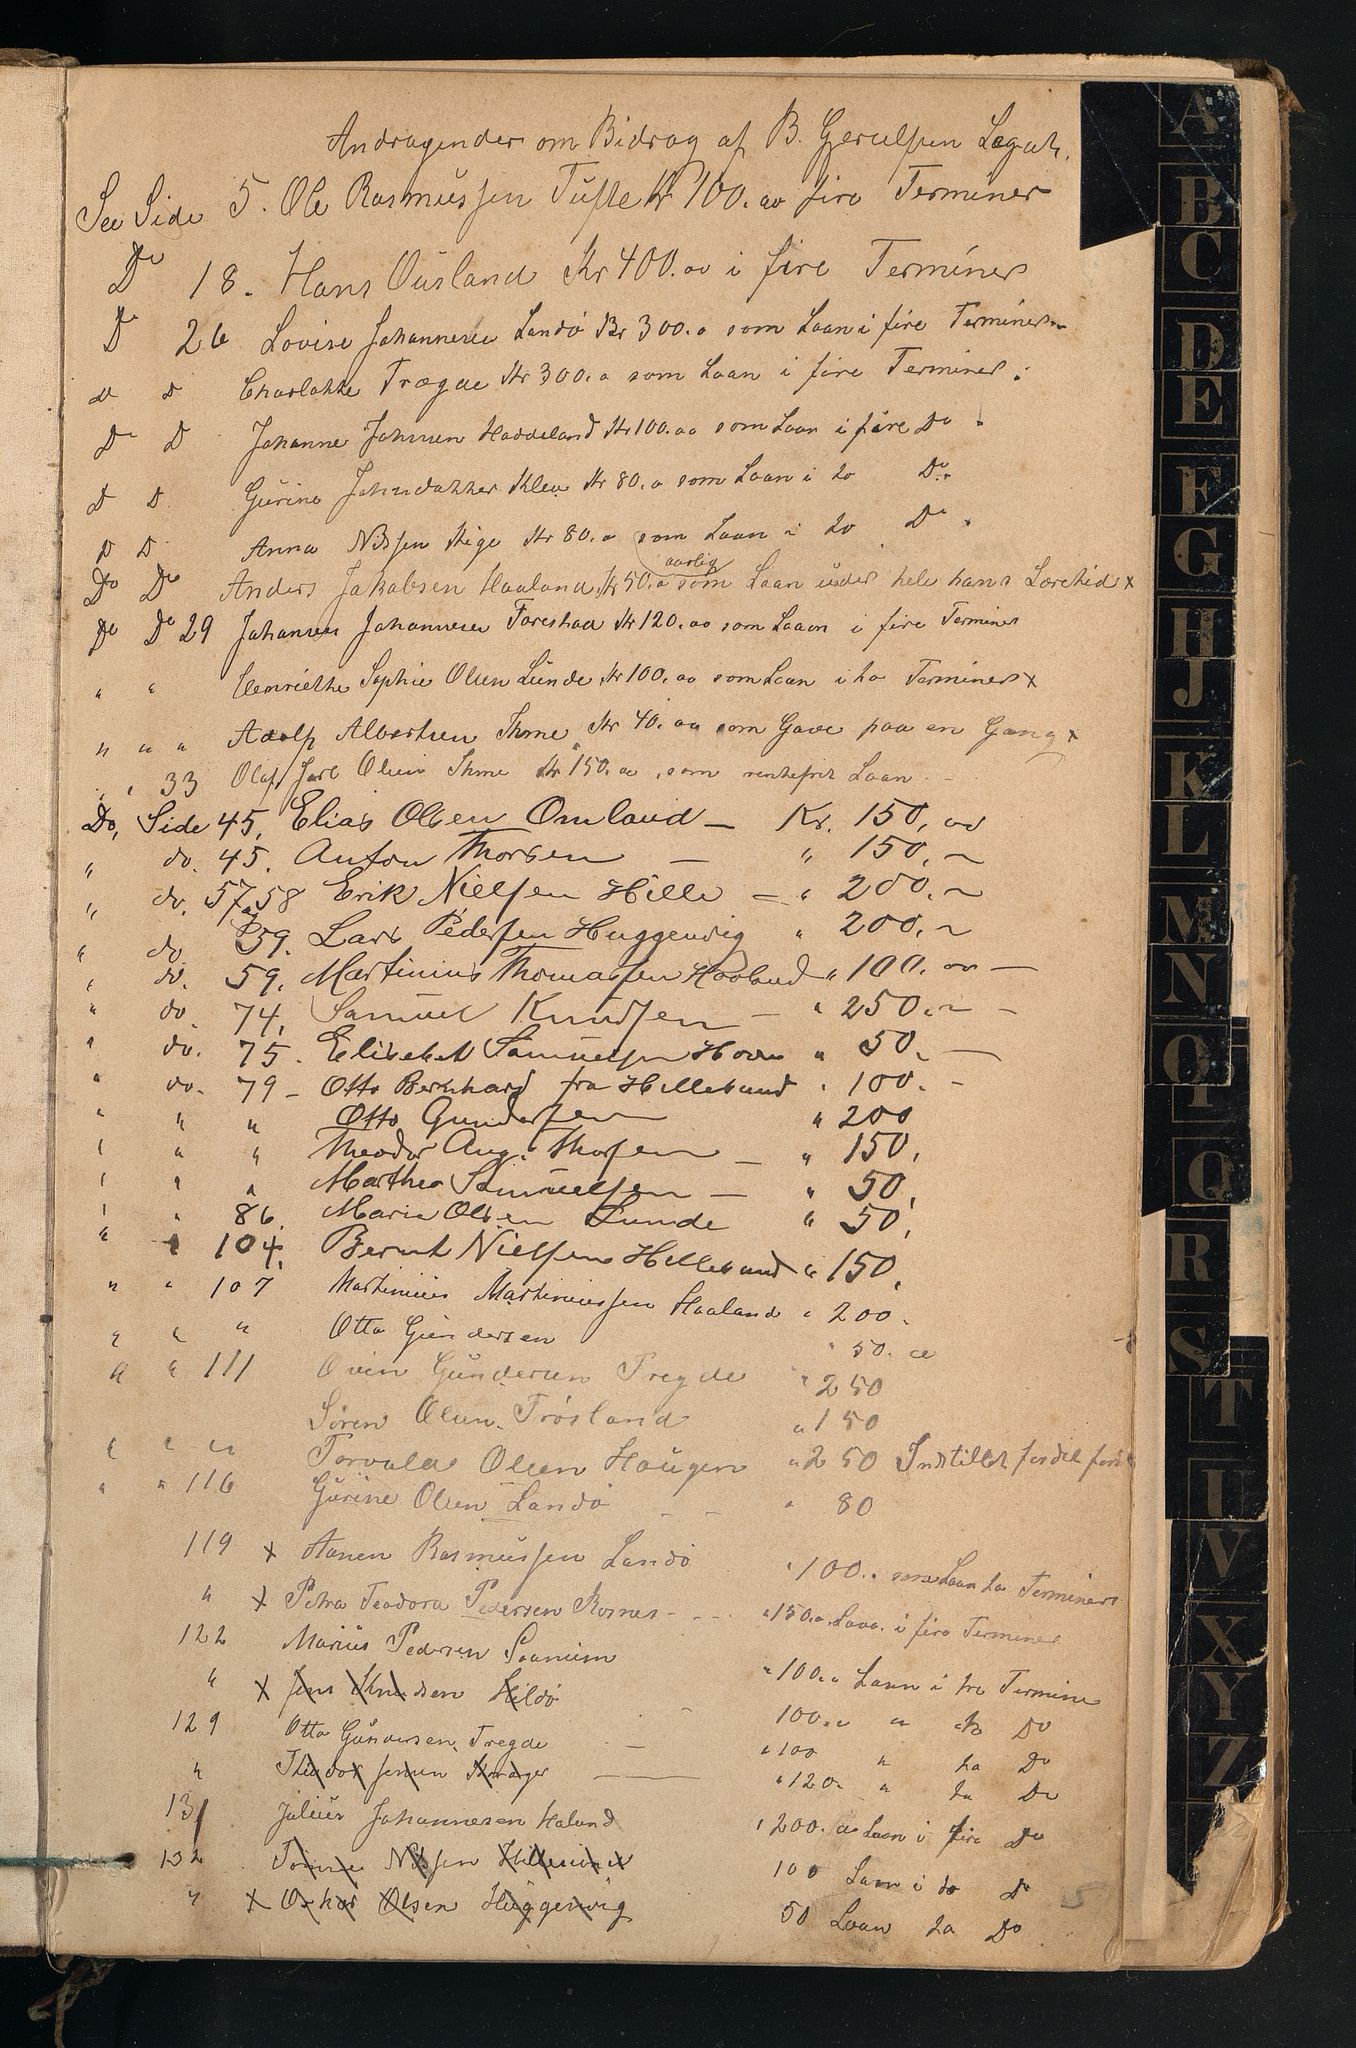 Andragender om Bidrag af B. Gerulfsen Legat.
See Side 5. Ole Rasmussen Tufte Kr 100.oo fire Terminer
Do 18. Hans Ousland Kr 400.oo i fire Terminer
Do 26 Lovise Johannesen Landö Kr 300.o som Laan i fire Terminer
D D Charlotte Trægde Kr 300.o som Laan i fire Terminer
Do D Johanne Johnsen Haddeland Kr 100.oo som Laan i fire Do
D D Gurine Kleve Kr 80.o som Laan i to Do
D D Anna Nilsen Stige Kr 80.o som Laan i to Do
aarlig
Do Do Anders Jakobsen Haaland Kr 50.o som Laan under hele hans Læretid x
Do Do 29 Johannes Johannesen Farestad Kr 120.oo som Laan i fire Terminer
" " Henriette Sophie Olsen Lunde Kr 100.oo som Laan i to Terminer x
" " " Adolf Albertsen Ihme Kr 40.oo som Gave paa en Gang x
" " 33 Olaf Jarl Olsen Ihme Kr 150.o, som rentefrit Laan
Do, Side 45, Elias Olsen Omland – Kr. 150, oo
" do. 45. Anton Thorsen – " 150. ~
" do. 57,58 Erik Nielsen Hille – " 200. ~
" do. 59. Lars Pedersen Huggenvig " 200. ~
" do. 59. Martinius Thomassen Haaland " 100. oo –
" do. 74, Samuel Knudsen – " 250. ~ –
" do. 75. Elisebet Samuelsen Hovn " 50. –
" do. 79 – Otto Bernhard fra Hillesund " 100. –
" " " Otto Gundersen " 200
" " " Theodor Aug. Thorsen – " 150,
" " " Marthea Samuelsen – " 50,
" " 86. Marie Olsen Lunde " 50,
" " 104, Bernt Nielsen Hillesund " 150,
" " 107 Martinius Martiniussen Haaland " 200.
" " " Otto Gundersen " 50. oo
" " 111 Ovin Gundersen Tregde " 250
Sören Olsen Trösland " 150
" " " Torvald Olsen Haugen " 250 Indstillet
" " 116 Gurine Olsen Landö – – " 80
119 x Aanen Rasmussen Landö " 100.. som Laan to Terminer
" x Petra Teodora Pedersen Rosnes - - - " 150.o. Laan i fire Terminer
122 Marius Pedersen Saanum " 100.o Laan i tre Termine
" x Jens Knudsen Hildö - - 100.o " to Do
129 Otto Gundersen Tregde – " 100 " to Do
" Theodor Jensen — " 120. " to Do
131 Julius Johannesen Haland " 200. o Laan i fire Do
132 Tomine Nilsen Hillesund 100 Laan i to Do
" x Oskar Olsen Huggenvig 50 Laan to Do
5
A
B
C
D
E
F
G
H
J
K
L
M
N
O
P
Q
R
S
T
U
V
X
Y
Z